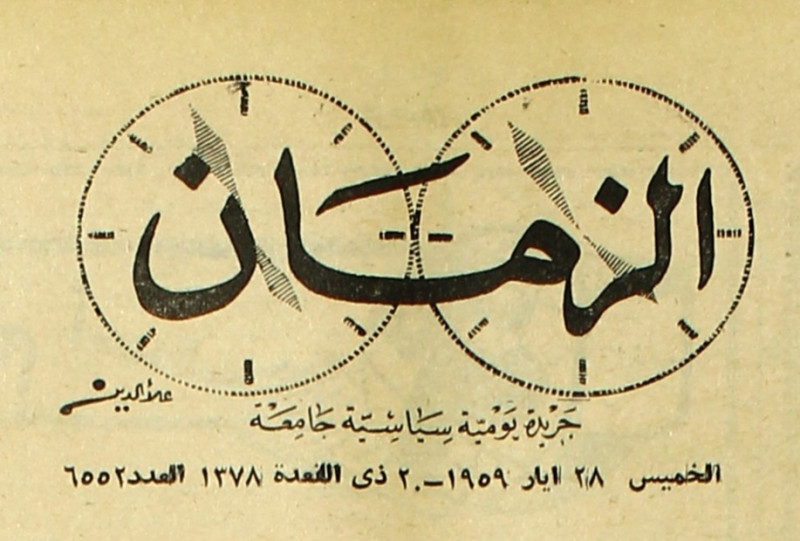 الزمان
علاءالدين
جَريدة يَوْميّة سِيَاسِيّة جَامِعَة
الخميس ٢٨ ايار ١٩٥٩ــ٢٠ ذى القعدة ١٣٧٨ العدد ٦٥٥٢